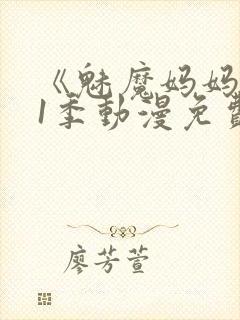 《魅魔妈妈
1季動漫免費
廖芳萱